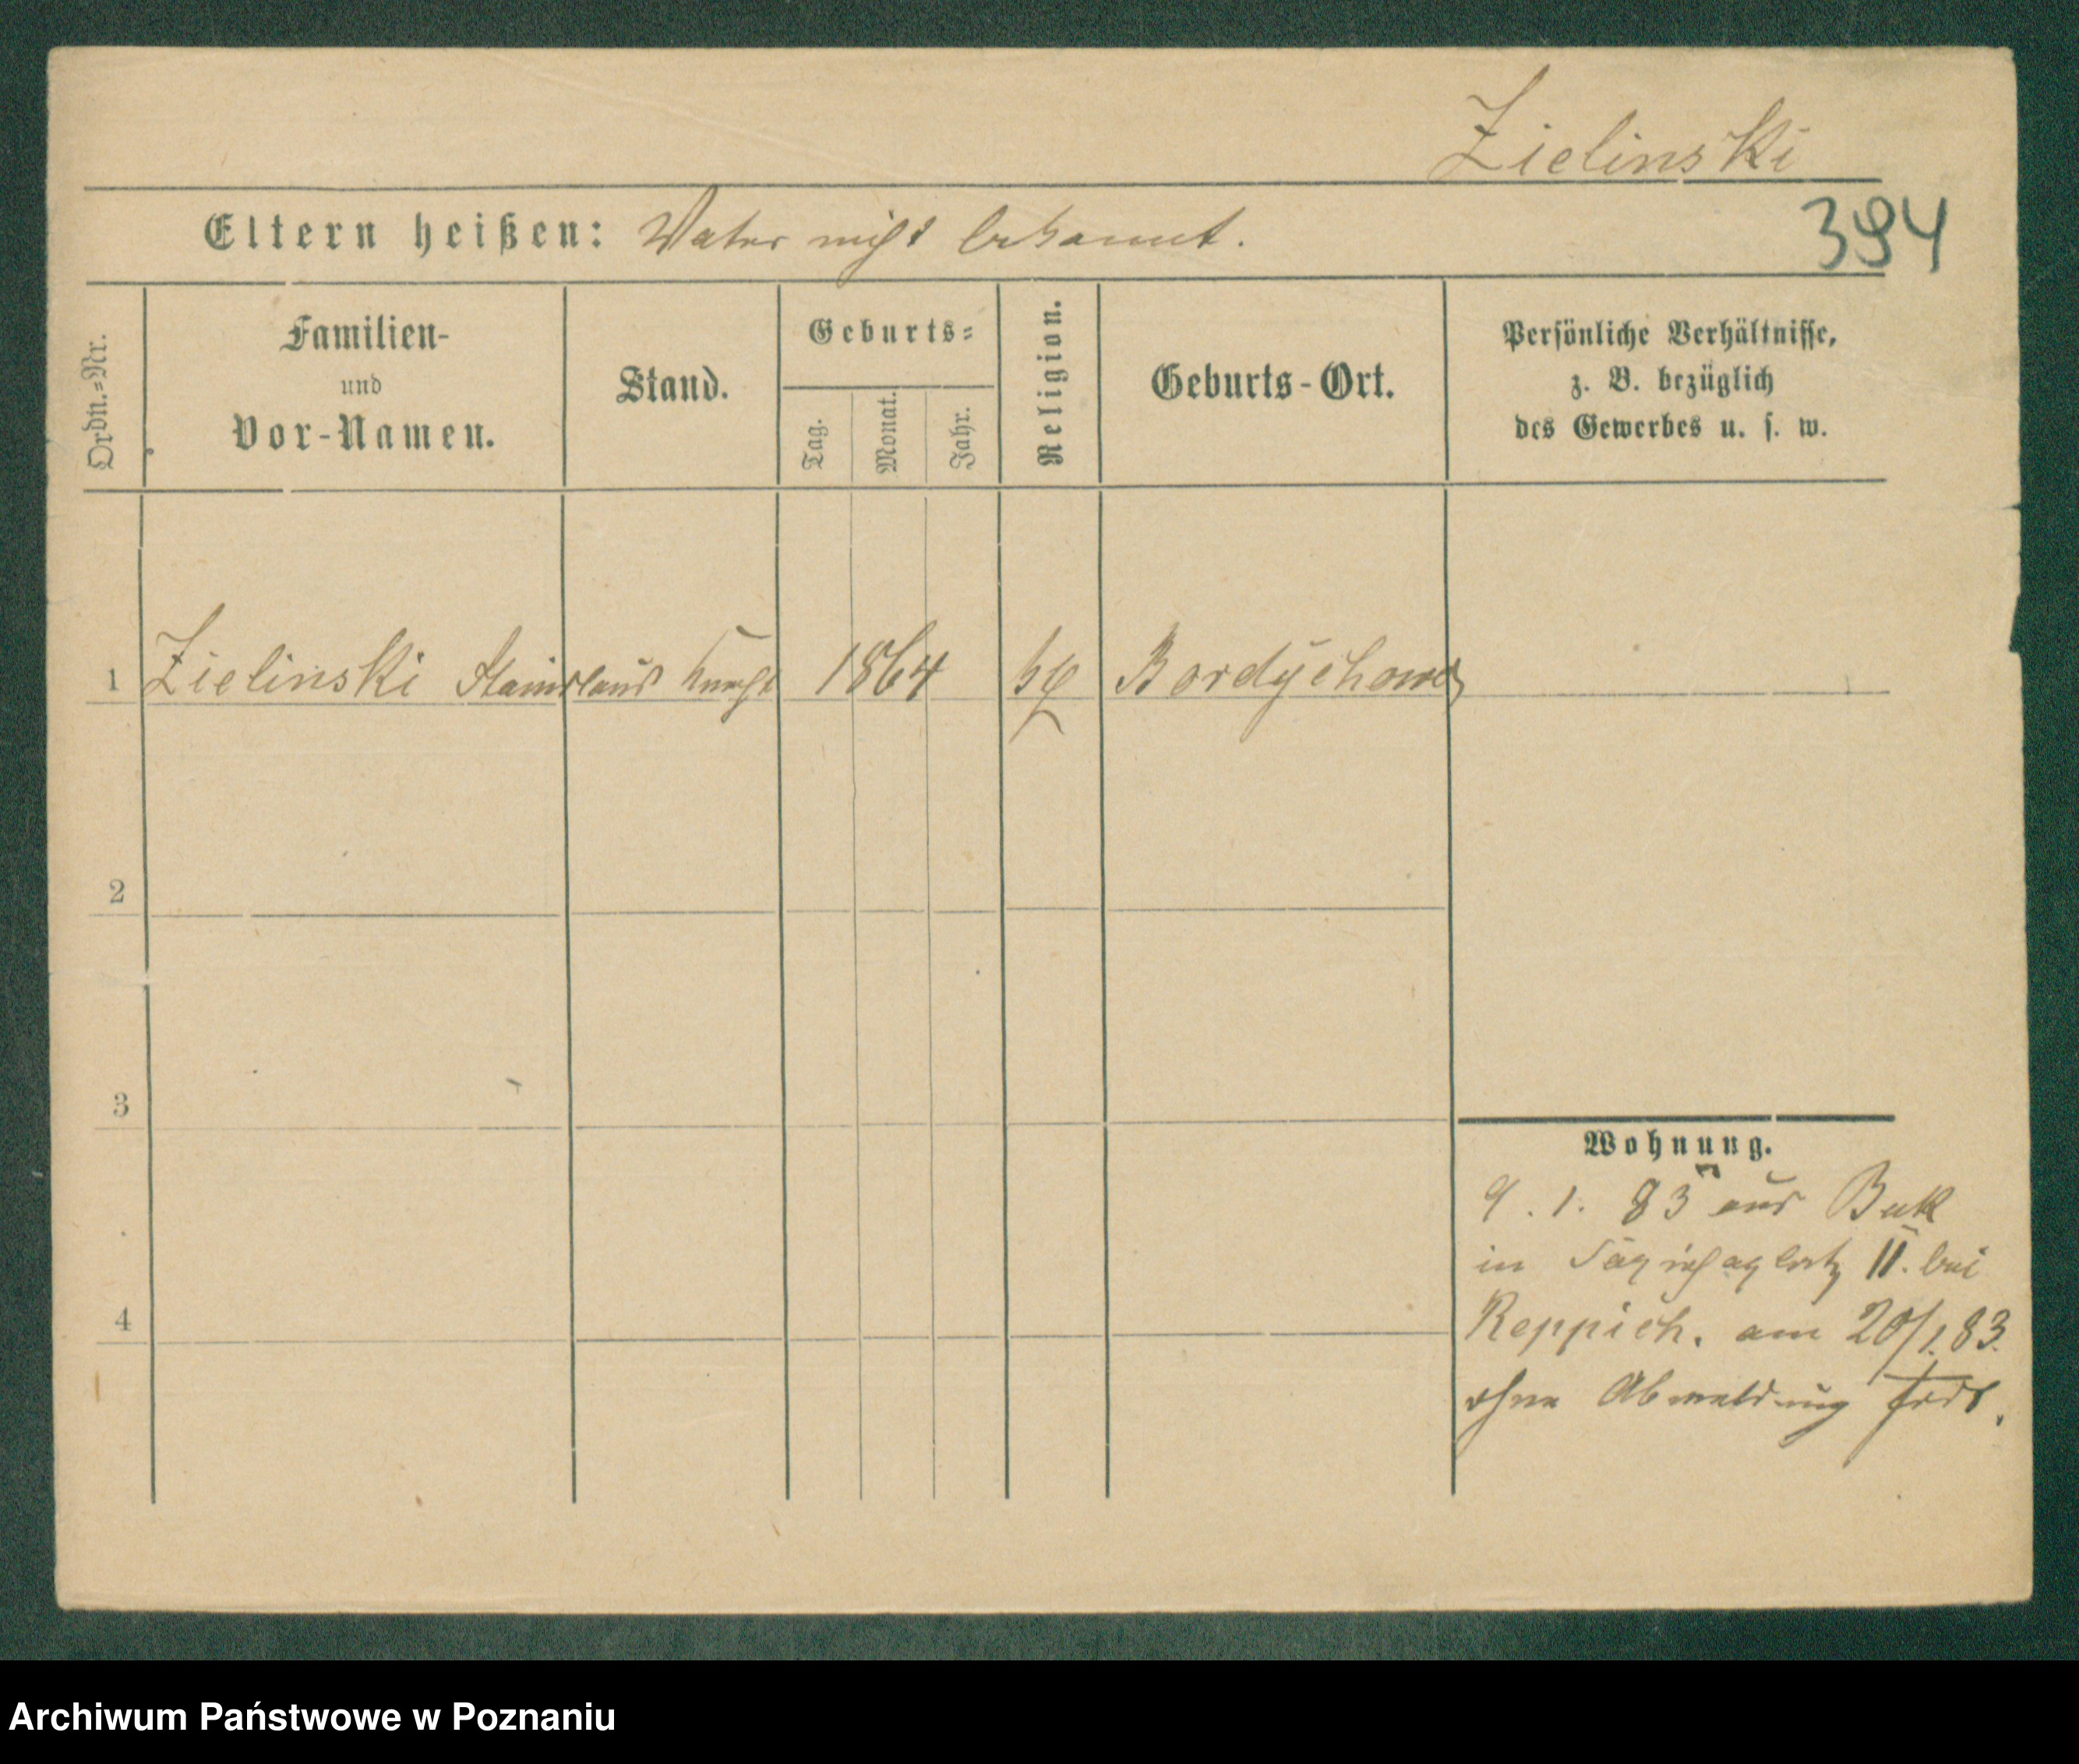 Zielinski
394
Eltern heißen: Vater nicht bekannt.
Ordn.=Nr.
Familien-
und
Vor-Namen.
Stand.
Geburts=
Tag.
Monat.
Jahr.
Religion.
Geburts-Ort.
Persönliche Verhältnisse,
z. B. bezüglich
des Gewerbes u. s. w.
1 Zielinski Stanislaus Knecht 1864 Bordychowo
2
3
4
Wohnung.
9. 1. 83 aus Buk
in II. bei
Reppich. am 20/1.83.
ohne Abmeldung fort.
Archiwum Państwowe w Poznaniu